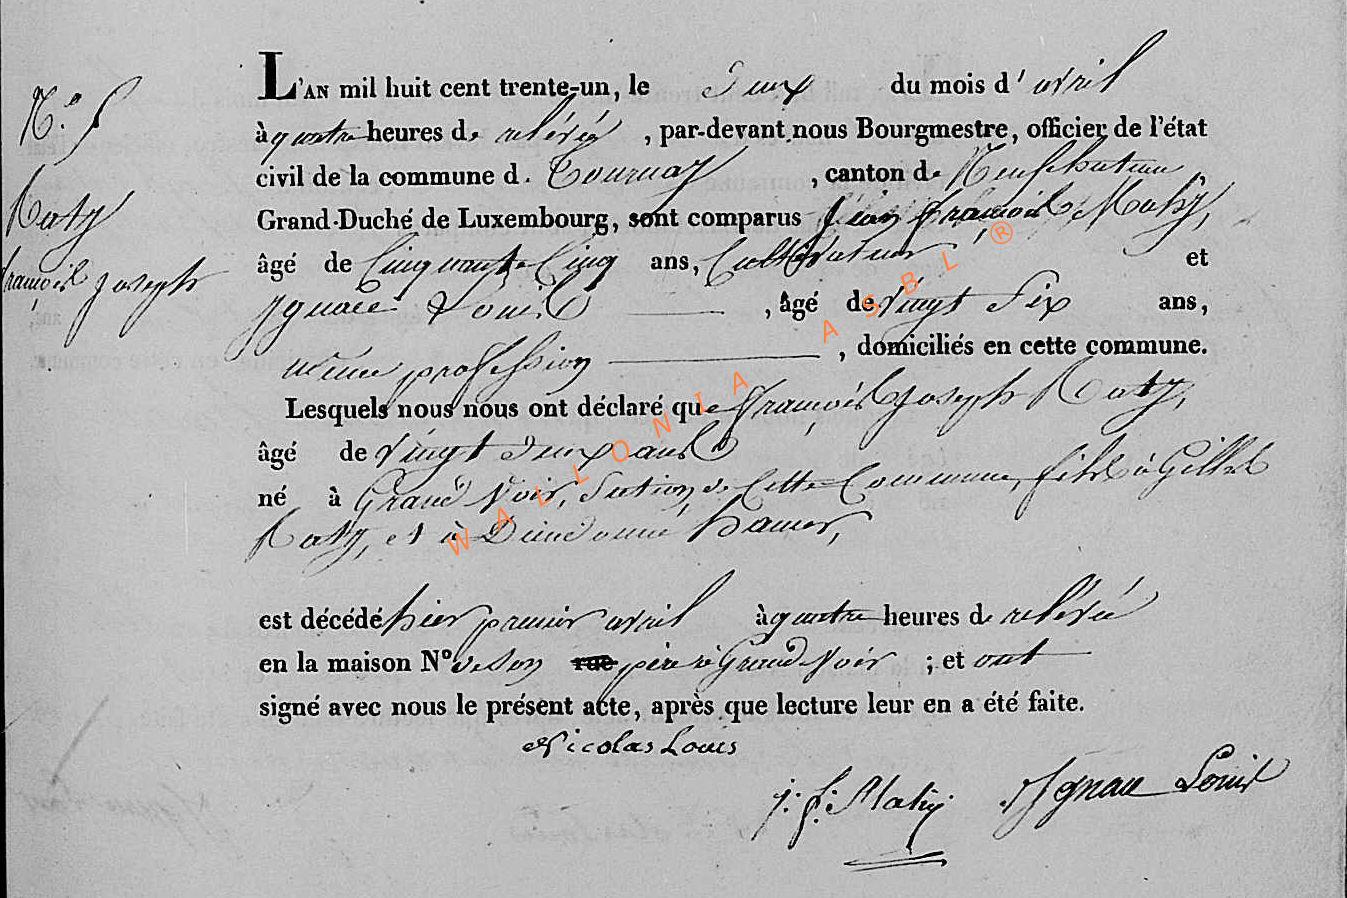 N.° 5
Raty
françois joseph
L'AN mil huit cent trente-un, le Deux du mois d' avril
à quatre heures de relévée, par-devant nous Bourgmestre, officier de l'état
civil de la commune d. Tournay, canton de Neufchateau,
Grand-Duché de Luxembourg, sont comparus jean françois Maty,
âgé de Cinquante Cinq ans, Cultivateur et
Ignace Louis, âgé de vingt six ans,
même profession, domiciliés en cette commune.
Lesquels nous nous ont déclaré que françois joseph Raty,
âgé de vingt deux ans
né à Grand Voir, Section de Cette Commune, fils à Gilles
Raty, et à Dieudonné hamer,
est décédé hier premier avril à quatre heures de relévée
en la maison N° de son rue père à Grand Voir ; et ont
signé avec nous le présent acte, après que lecture leur en a été faite.
Nicolas Louis
j: f: Maty Ignace Louis
WALLONIA ASBL ®